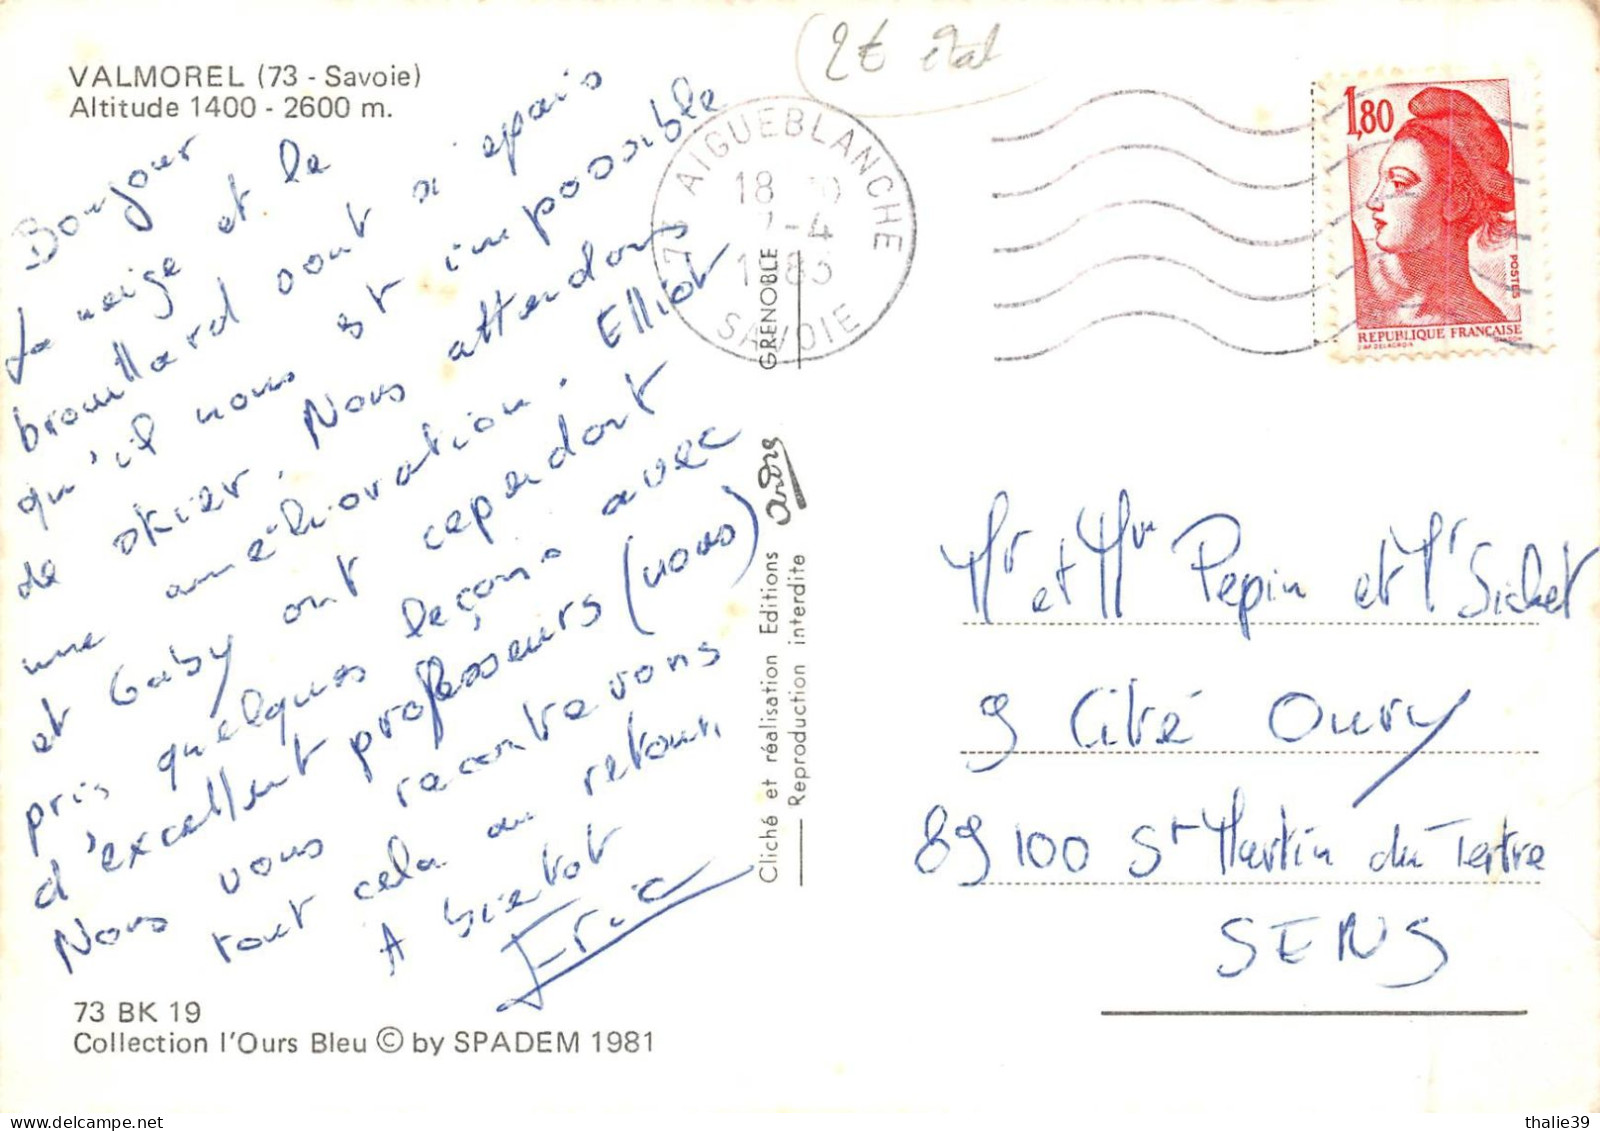 VALMOREL (73 - Savoie)
Altitude 1400 - 2600 m.
2€
Bonjour
La neige et le
brouillard sont si épais
qu'il nous est impossible
de skier. Nous attendons
une amélioration. Elliot
et Gaby ont cependant
pris quelques leçons avec
d'excellent professeurs (nous)
Nous vous raconterons
tout cela au retour
A bientot
Eric
73 BK 19
Collection l'Ours Bleu © by SPADEM 1981
73 AIGUEBLANCHE
18
-4
1985
SAVOIE
GRENOBLE
Cliché et réalisation Editions
Reproduction interdite
1,80
POSTES
REPUBLIQUE FRANÇAISE
D'AP. DELACROIX
GANDON
Mr et Mm Pepin et Mr Sichet
9 Cité Oury
89100 St Martin du Tertre
SENS
thalie39